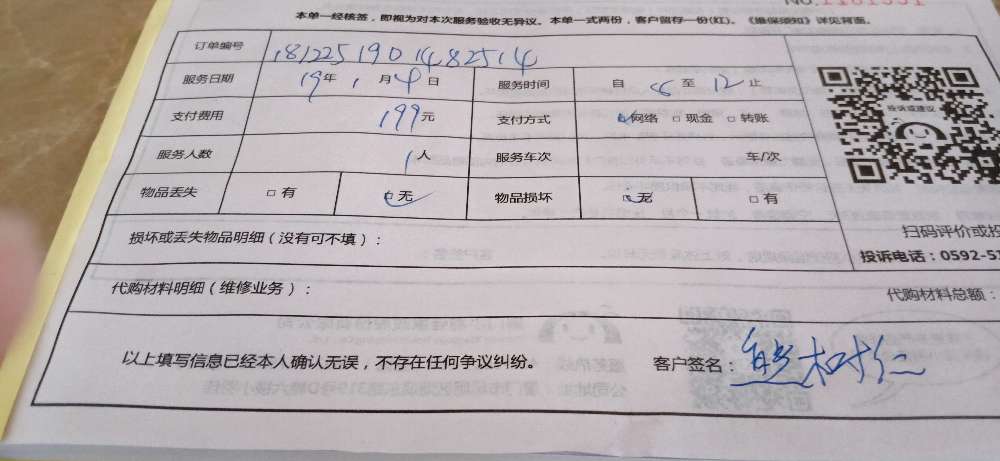 NO.1181551
本单一经核签，即视为对本次服务验收无异议。本单一式两份，客户留存一份(红)。《维保须知》详见背面。
订单编号 18122519014482514
服务日期 19年1月4日 服务时间 自8至12止
支付费用 199元 支付方式 网络 现金 转账
投诉或建议
服务人数 1人 服务车次 车/次
物品丢失 有 无 物品损坏 无 有
扫码评价或投
损坏或丢失物品明细（没有可不填）：
投诉电话：0592-51
代购材料明细（维修业务）：
代购材料总额：
以上填写信息已经本人确认无误，不存在任何争议纠纷。 客户签名：熊树仁